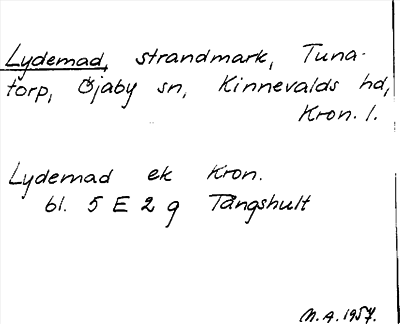 Lydemad, strandmark, Tuna-
torp, Öjaby sn, Kinnevalds hd,
Kron. l.
Lydemad ek Kron.
bl. 5 E 2 g Tångshult
M.A. 1957.